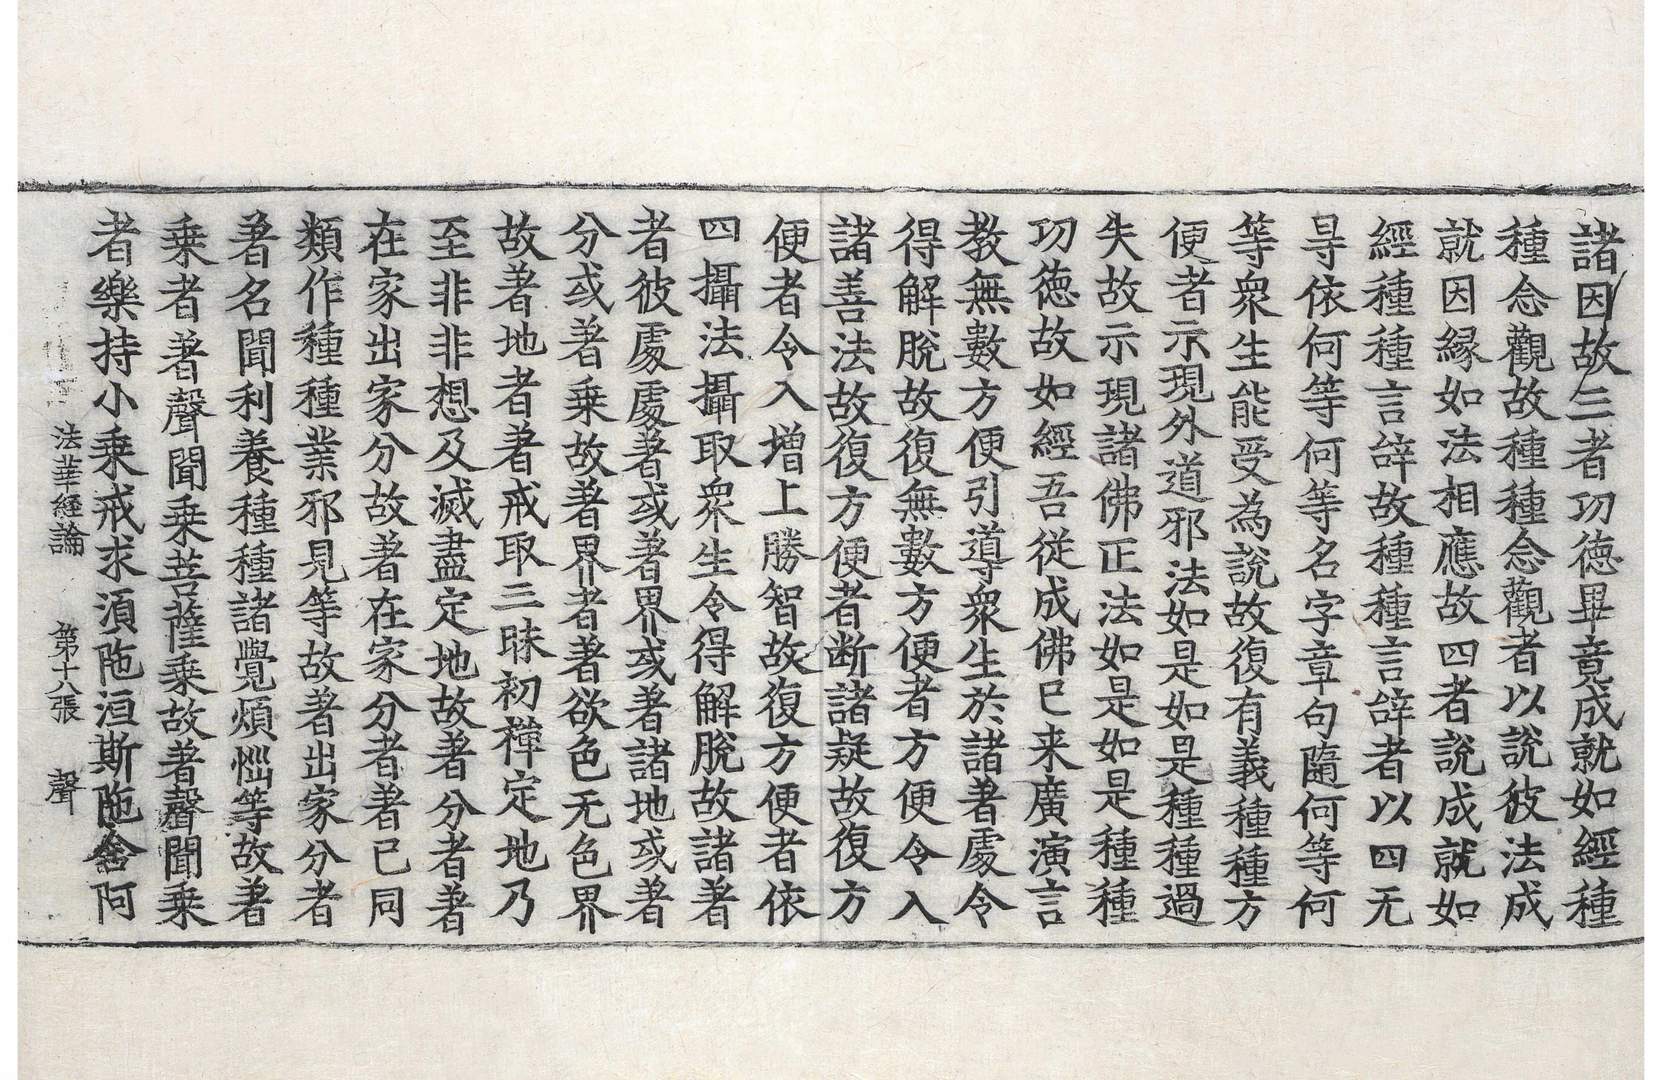 諸因故三者功德畢竟成就如經種
種念觀故種種念觀者以說彼法成
就因緣如法相應故四者說成就如
經種種言辞故種種言辞者以四无
㝵依何等何等名字章句隨何等何
等衆生能受為說故復有義種種方
便者示現外道邪法如是如是種種過
失故示現諸佛正法如是如是種種
功德故如經吾從成佛已来廣演言
教無數方便引導衆生於諸著處令
得解脫故復無數方便者方便令入
諸善法故復方便者断諸疑故復方
便者令入增上勝智故復方便者依
四攝法攝取衆生令得解脫故諸著
者彼處處著或著界或著諸地或著
分或著乗故著界者著欲色无色界
故著地者著戒取三昧初禪定地乃
至非非想及滅盡定地故著分者著
在家出家分故著在家分者著已同
類作種種業邪見等故著出家分者
著名聞利養種種諸覺煩惱等故著
乗者著聲聞乗菩薩乗故著聲聞乗
者樂持小乗戒求湏陁洹斯陁含阿
法華経論　第十八張　聲